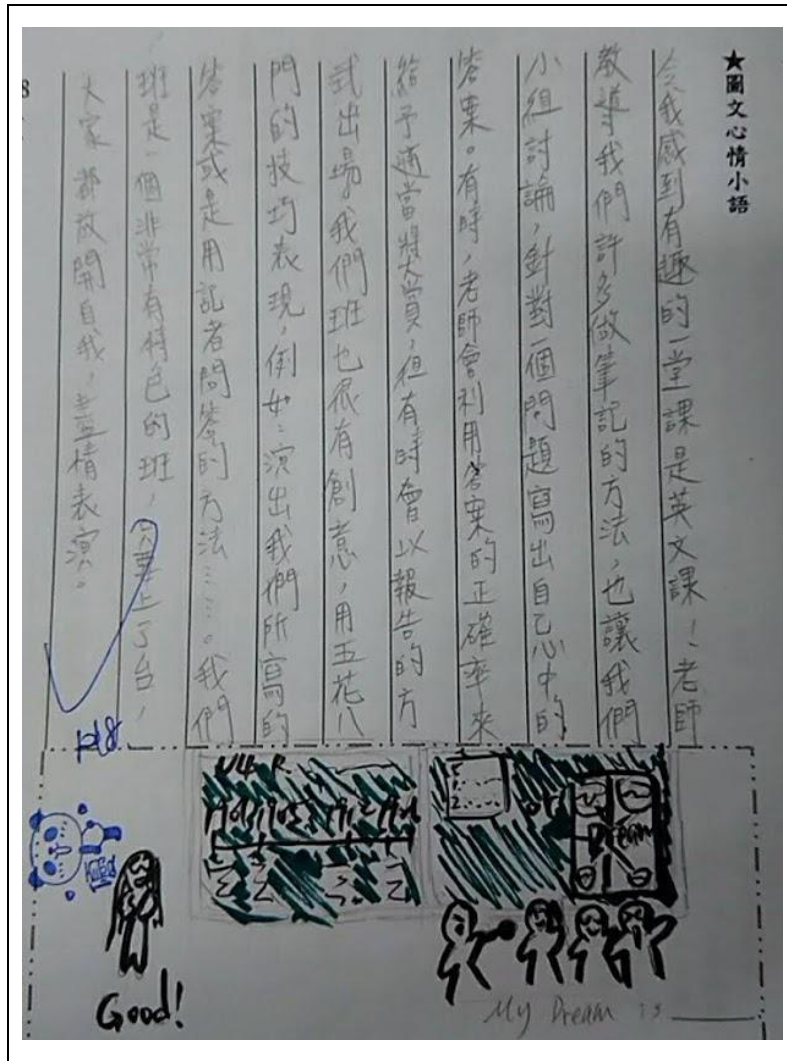 ★圖文心情小語
令我感到有趣的一堂課是英文課！老師
教導我們許多做筆記的方法，也讓我們
小組討論，針對一個問題寫出自己心中的
答案。有時，老師會利用答案的正確率來
給予適當獎賞，但有時會以報告的方
式出場。我們班也很有創意，用五花八
門的技巧表現，例如：演出我們所寫的
答案或是用記者問答的方法……。我們
班是一個非常有特色的班，只要上了台，
大家都放開自我，盡情表演。
U4 R
Dream
優
Good!
My Dream is